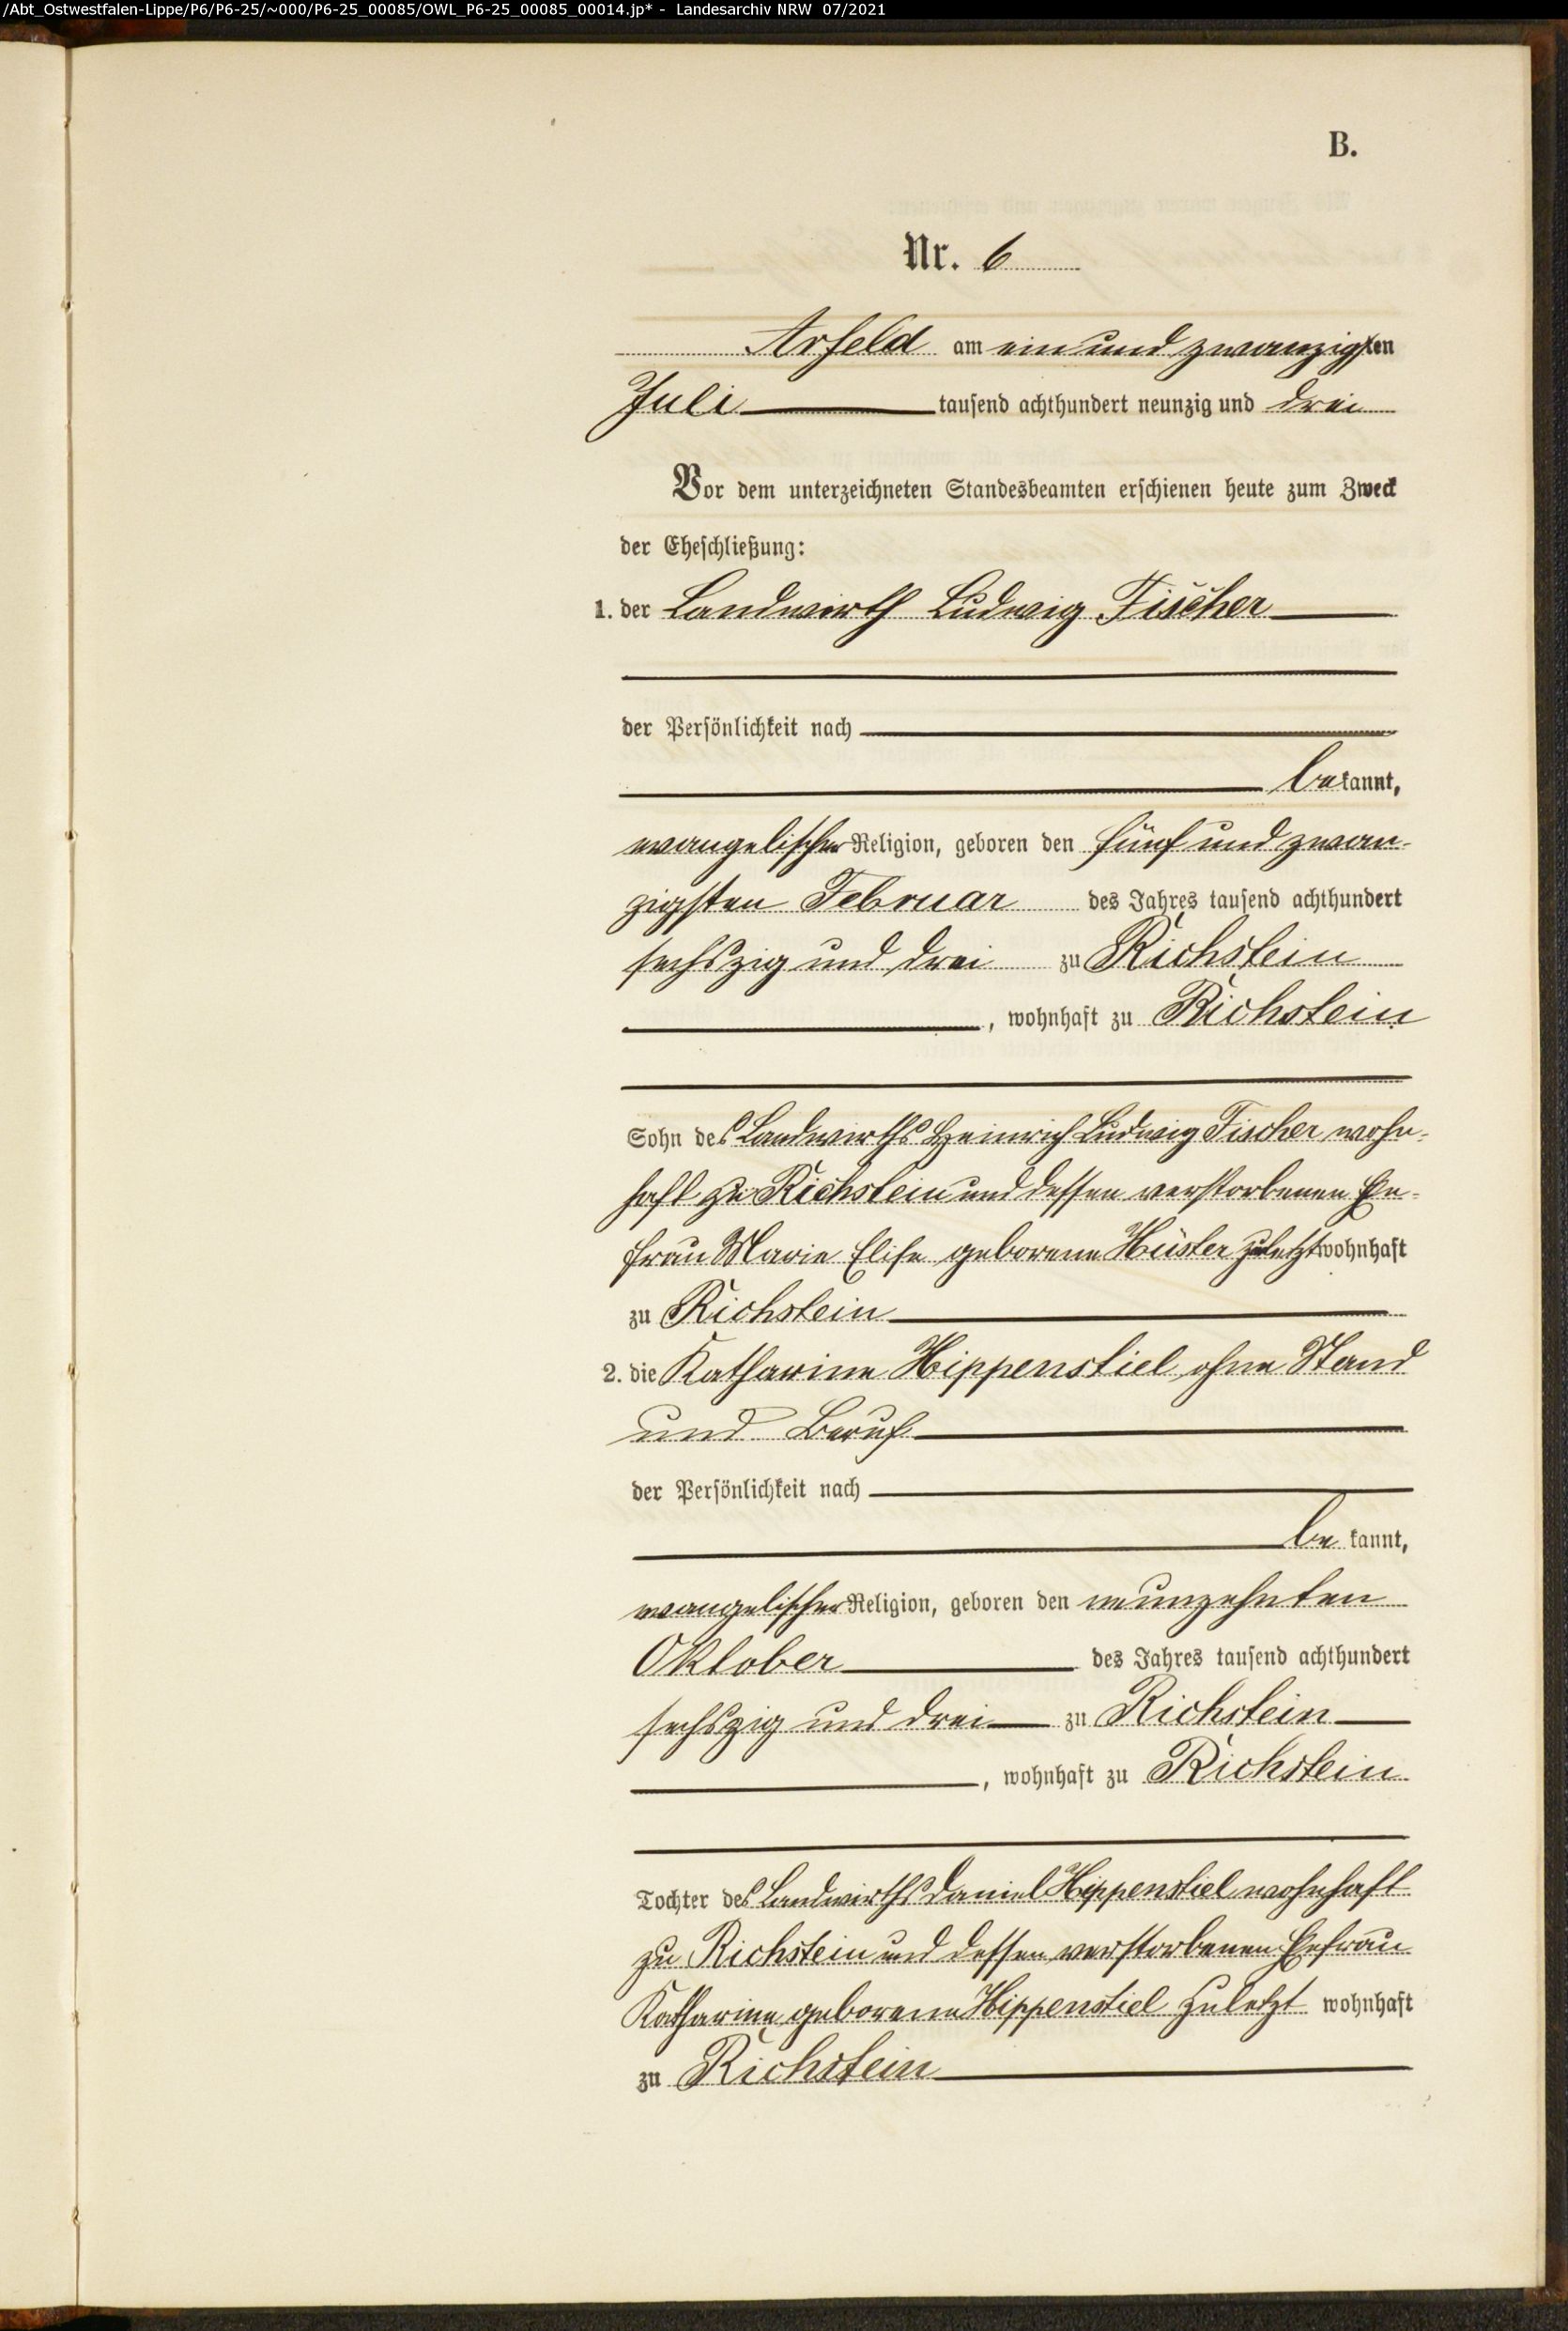 /Abt_Ostwestfalen-Lippe/P6/P6-25/~000/P6-25_00085/OWL_P6-25_00085_00014.jp* - Landesarchiv NRW 07/2021
B.
Nr. 6
Arfeld am ein und zwanzigsten
Juli tausend achthundert neunzig und drei
Vor dem unterzeichneten Standesbeamten erschienen heute zum Zweck
der Eheschließung:
1. der Landwirth Ludwig Fischer
der Persönlichkeit nach
bekannt,
evangelischer Religion, geboren den fünf und zwan-
zigsten Februar des Jahres tausend achthundert
sechszig und drei zu Richstein
, wohnhaft zu Richstein
Sohn des Landwirths Heinrich Ludwig Fischer wohn-
haft zu Richstein und dessen verstorbenen Ehe-
frau Marie Elise geborene Hüster zuletzt wohnhaft
zu Richstein
2. die Katharine Hippenstiel, ohne Stand
und Beruf
der Persönlichkeit nach
be kannt,
evangelischer Religion, geboren den neunzehnten
Oktober des Jahres tausend achthundert
sechszig und drei zu Richstein
, wohnhaft zu Richstein
Tochter des Landwirths Daniel Hippenstiel wohnhaft
zu Richstein und dessen verstorbenen Ehefrau
Katharine geborene Hippenstiel zuletzt wohnhaft
zu Richstein